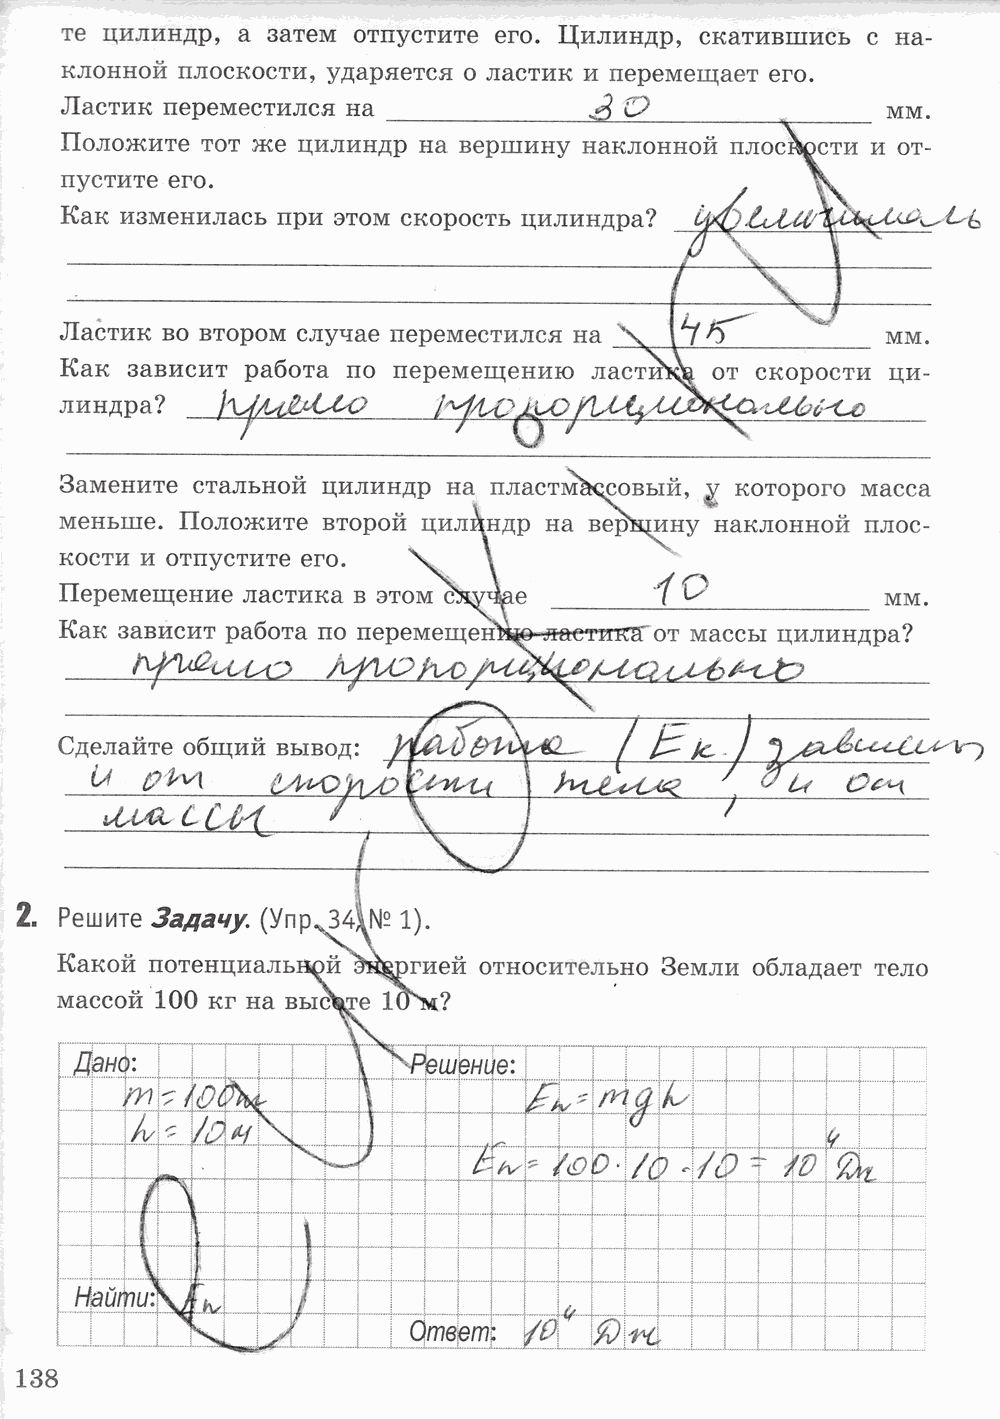 те цилиндр, а затем отпустите его. Цилиндр, скатившись с на-
клонной плоскости, ударяется о ластик и перемещает его.
Ластик переместился на 30 мм.
Положите тот же цилиндр на вершину наклонной плоскости и от-
пустите его.
Как изменилась при этом скорость цилиндра? увеличилась
Ластик во втором случае переместился на 45 мм.
Как зависит работа по перемещению ластика от скорости ци-
линдра? прямо пропорционально
Замените стальной цилиндр на пластмассовый, у которого масса
меньше. Положите второй цилиндр на вершину наклонной плос-
кости и отпустите его.
Перемещение ластика в этом случае 10 мм.
Как зависит работа по перемещению ластика от массы цилиндра?
прямо пропорционально
Сделайте общий вывод: работа (Ек) зависит
и от скорости тела, и от
массы
2. Решите Задачу. (Упр. 34, № 1).
Какой потенциальной энергией относительно Земли обладает тело
массой 100 кг на высоте 10 м?
Дано: Решение:
m = 100 Eп = mgh
h = 10м
Eп = 100 · 10 · 10 = 10⁴ Дж
Найти: Eп
Ответ: 10⁴ Дж
138